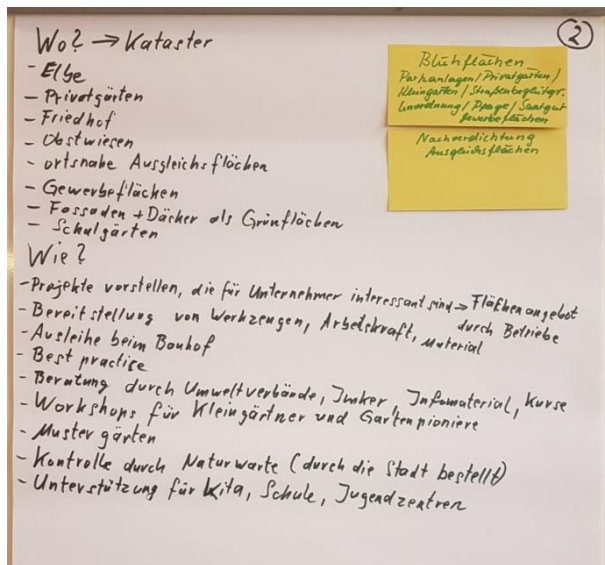 ②
Wo? → Kataster
- Elbe
- Privatgärten
- Friedhof
- Obstwiesen
- ortsnahe Ausgleichsflächen
- Gewerbeflächen
- Fassaden + Dächer als Grünflächen
- Schulgärten
Blühflächen
Parkanlagen / Privatgärten /
Kleingärten / Straßenbegleitgr.
Unordnung / Pflege / Saatgut
Gewerbeflächen
Nachverdichtung
Ausgleichsflächen
Wie?
- Projekte vorstellen, die für Unternehmer interessant sind → Flächenangebot
durch Betriebe
- Bereitstellung von Werkzeugen, Arbeitskraft, Material
- Ausleihe beim Bauhof
- Best practice
- Beratung durch Umweltverbände, Imker, Infomaterial, Kurse
- Workshops für Kleingärtner und Gartenpioniere
- Mustergärten
- Kontrolle durch Naturwarte (durch die Stadt bestellt)
- Unterstützung für Kita, Schule, Jugendzentren